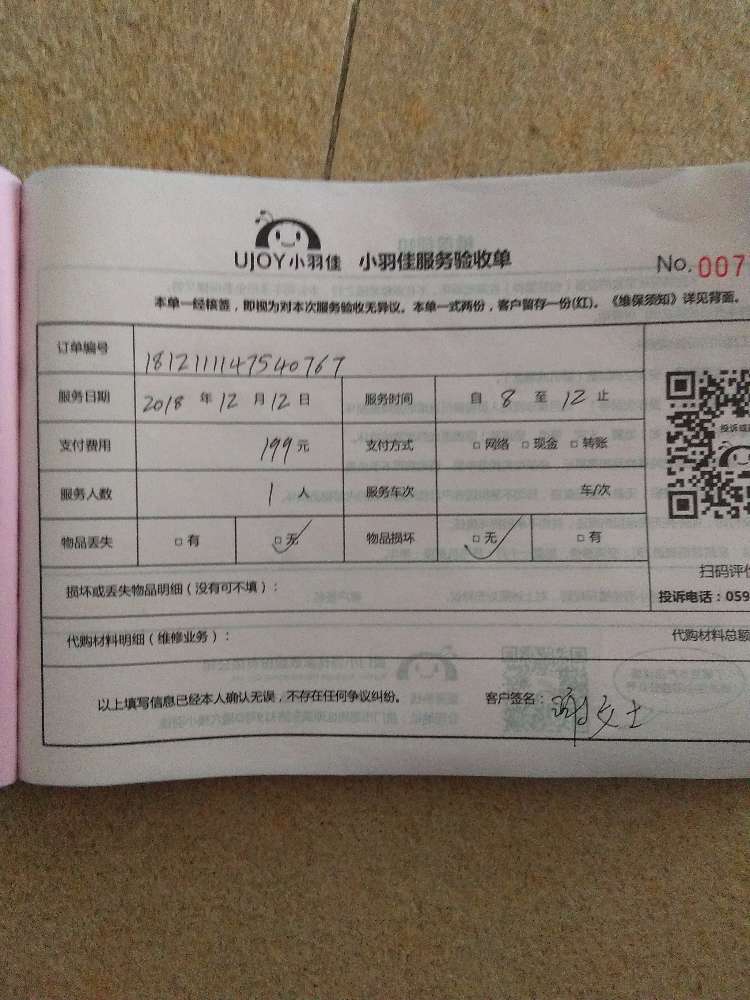 UJOY小羽佳 小羽佳服务验收单 No.007
本单一经核签，即视为对本次服务验收无异议。本单一式两份，客户留存一份(红)。《维保须知》详见背面。
订单编号 1812111147540767
服务日期 2018 年 12 月 12 日 服务时间 自 8 至 12 止
支付费用 199 元 支付方式 □网络 □现金 □转账
服务人数 1 人 服务车次 车/次
投诉或
物品丢失 □有 □无 物品损坏 □无 □有
扫码评价
损坏或丢失物品明细（没有可不填）：
投诉电话：059
代购材料明细（维修业务）： 代购材料总额
以上填写信息已经本人确认无误，不存在任何争议纠纷。 客户签名：谢女士